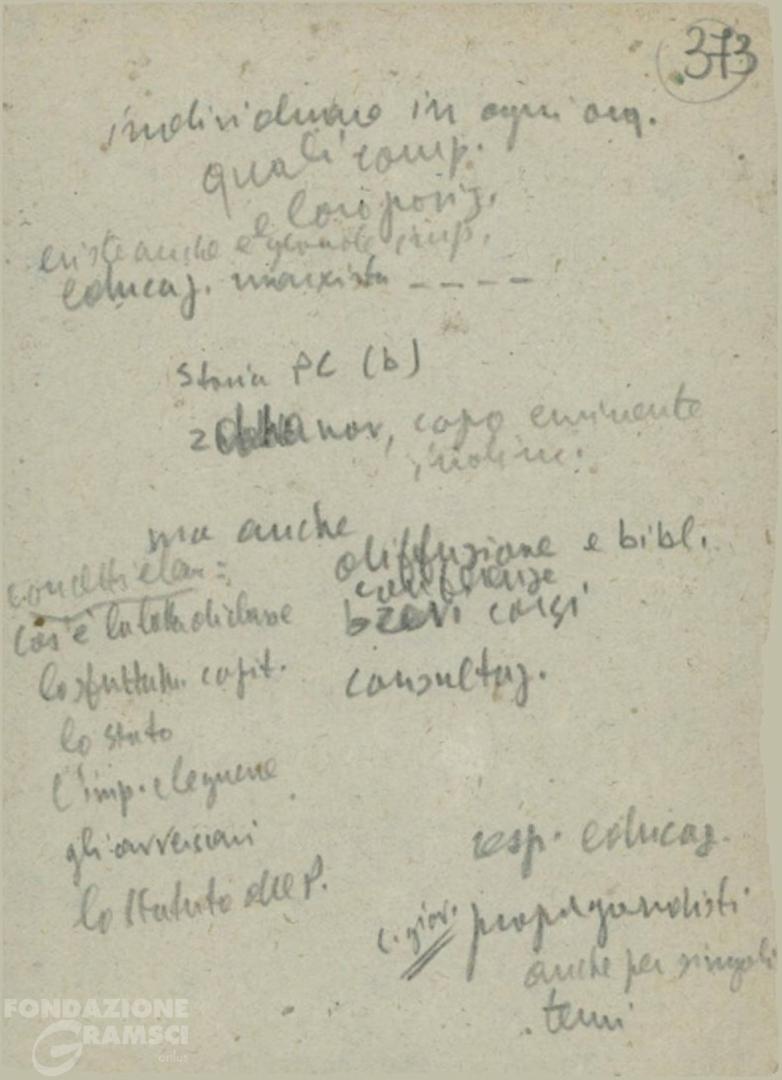 373
individuare in ogni org.
quali comp.
e loro posiz.
esiste anche e grande imp.
educaz. marxista - - - -
Storia PC (b)
capo eminente
ma anche
diffusione e bibl.
conferenze
brevi corsi
consultaz.
concetti elem:
cos'è la lotta di classe
lo sfruttam. capit.
lo stato
l'imp. e le guerre
gli avversari
lo statuto del P.
resp. educaz.
propagandisti
anche per singoli
temi
FONDAZIONE
GRAMSCI
onlus